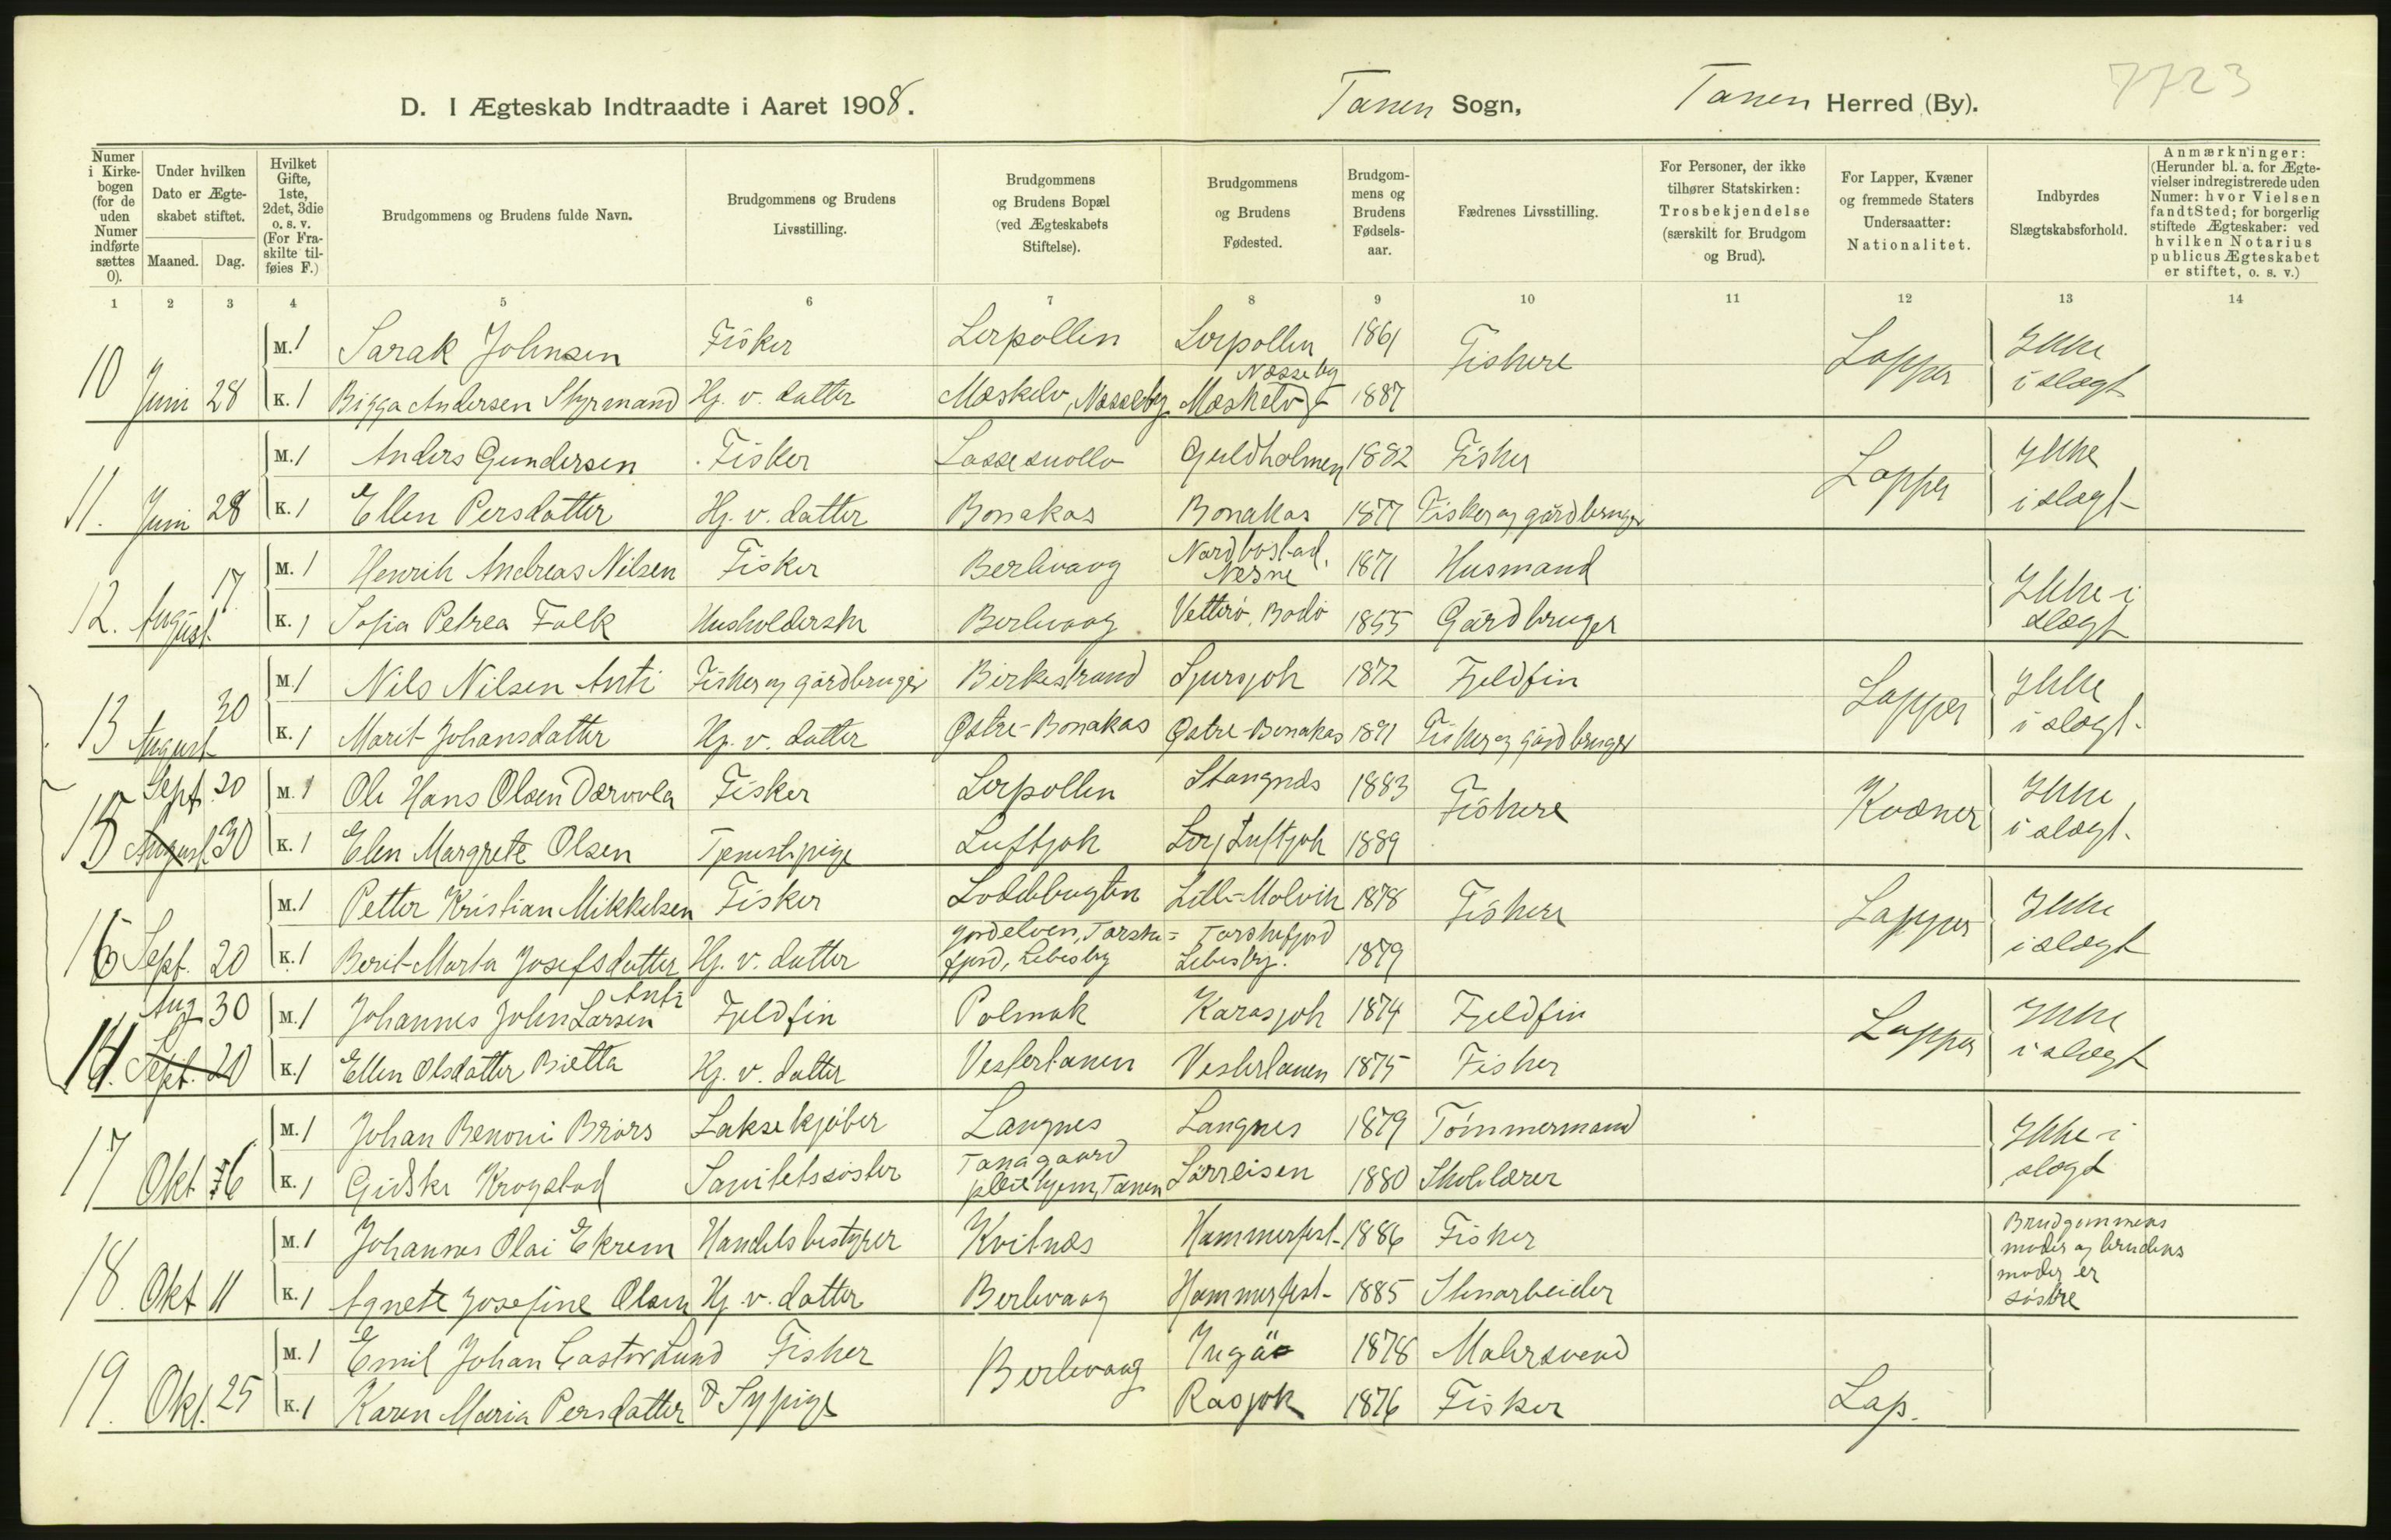 7723
D. I Ægteskab Indtraadte i Aaret 1908. Tanen Sogn, Tanen Herred (By).
Numer i Kirkebogen (for de uden Numer indførte sættes 0).
Under hvilken Dato er Ægteskabet stiftet.
Maaned. Dag.
Hvilket Gifte, 1ste, 2det, 3die o. s. v. (For Fraskilte tilføies F.)
Brudgommens og Brudens fulde Navn.
Brudgommens og Brudens Livsstilling.
Brudgommens og Brudens Bopæl (ved Ægteskabets Stiftelse).
Brudgommens og Brudens Fødested.
Brudgommens og Brudens Fødselsaar.
Fædrenes Livsstilling.
For Personer, der ikke tilhører Statskirken: Trosbekjendelse (særskilt for Brudgom og Brud).
For Lapper, Kvæner og fremmede Staters Undersaatter: Nationalitet.
Indbyrdes Slægtskabsforhold.
Anmærkninger: (Herunder bl. a. for Ægtevielser indregistrerede uden Numer: hvor Vielsen fandt Sted; for borgerlig stiftede Ægteskaber: ved hvilken Notarius publicus Ægteskabet er stiftet, o. s. v.)
1 2 3 4 5 6 7 8 9 10 11 12 13 14
M. 1 Sarak Johnsen Fisker Lerpollen Lerpollen 1861 Fiskere Lapper Ikke
10 Juni 28 K. 1 Bigga Andersen Styrmand Hj. v. datter Mæskelv, Næsseby Mæskelv Næsseby 1887 i slægt
M. 1 Anders Gundersen Fisker Lassesuollo Guldholmen 1882 Fisker Lapper Ikke
11. Juni 28 K. 1 Ellen Persdatter Hj. v. datter Bonakas Bonakas 1877 Fisker og gårdbruger i slægt
M. 1 Henrik Andreas Nilsen Fisker Berlevaag Nordbostad, Nesne 1871 Husmand Ikke i
12. August 17 K. 1 Sofia Petrea Falk Husholderske Berlevaag Vetterö, Bodö 1855 Gårdbruger slægt
M. 1 Nils Nilsen Anti Fisker og gårdbruger Birkestrand 1872 Fjeldfin Lapper Ikke
13 August 30 K. 1 Marit Johansdatter Hj. v. datter Østre-Bonakas Østre-Bonakas 1871 Fisker og gårdbruger i slægt.
Sept. 20 M. 1 Ole Hans Olsen Dærvola Fisker Lerpollen Stangnæs 1883 Fiskere Kvæner Ikke
15 August 30 K. 1 Elen Margrete Olsen Tjenestepige Luftjok Luftjok 1889 i slægt.
M. 1 Petter Kristian Mikkelsen Fisker Loddebugten Lille-Molvik 1878 Fiskere Lapper Ikke
16 Sept. 20 K. 1 Berit Marta Josefsdatter Hj. v. datter Torskefjord, Lebesby Torskefjord Lebesby. 1879 i slægt
Aug 30 M. 1 Johannes John Larsen Anti Fjeldfin Polmak Karasjok 1874 Fjeldfin Lapper Ikke
14. Sept. 20 K. 1 Ellen Olsdatter Bietta Hj. v. datter Vestertanen Vestertanen 1875 Fisker i slægt
M. 1 Johan Benoni Briörs Laksekjöber Langnes Langnes 1879 Tömmermand Ikke i
17 Okt 6 K. 1 Gidske Krogstad Sanitetssöster Tanagaard pleiehjem, Tanen Sörreisen 1880 Skolelærer slægt
M. 1 Johannes Olai Ekrem Handelsbestyrer Kvitnæs Hammerfest 1886 Fisker Brudgommens moder og brudens
18. Okt 11 K. 1 Agnete Josefine Olsen Hj. v. datter Berlevaag Hammerfest 1885 Stenarbeider moder er söstre
M. 1 Emil Johan Castor Lund Fisker Berlevaag Ingö 1878 Malersvend
19. Okt. 25 K. 1 Karen Maria Persdatter Sypige Rasjok 1876 Fisker Lap.